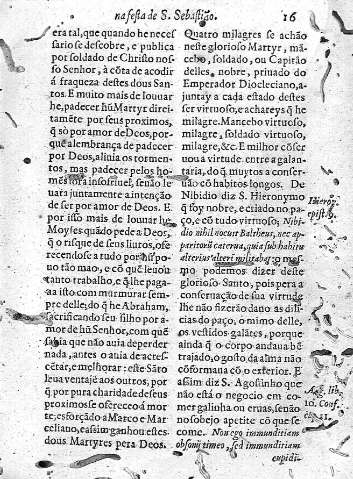 na festa de S. Sebastião.
16
era tal, que quando he neces
sario se descobre, e publica
por soldado de Christo nos-
so Senhor, à cõta de acodir
á fraqueza destes dous San-
tos. E muito mais de louuar
he, padecer hũ Martyr direi-
tamẽte por seus proximos,
q̃ sò por amor de Deos, por-
que a lembrança de padecer
por Deos, aliuia os tormen-
tos, mas padecer pelos ho-
mẽs fora insofriuel, senão le
uàra juntamente a intenção
de ser por amor de Deos. E
por isso mais de louuar he
Moyses quãdo pede a Deos,
q̃ o risque de seus liuros, ofe-
recendose a tudo por hũ po-
uo tão mao, e cõ quẽ leuou
tanto trabalho, e q̃ lhe paga-
ua isto com murmurar sem-
pre delle, do q̃ he Abraham,
sacrificando seu filho por a-
mor de hũ Senhor, com quẽ
sabia que não auia de perder
nada, antes o auia de acres-
cẽtar, e melhorar: este Sãto
leua ventajẽ aos outros, por
q̃ por pura charidade de seus
proximos se ofereceo á mor
te; esforção a Marco e Mar-
celiano, e assim ganhou estes
dous Martyres pera Deos.
Quatro milagres se achão
neste glorioso Martyr, mã-
cebo, soldado, ou Capitão
delles, nobre, priuado do
Emperador Diocleciano, a-
juntay a cada estado destes
ser virtuoso, e achareys q̃ he
milagre. Mancebo virtuoso,
milagre, soldado virtuoso,
milagre, &c. E milhor cõser
uou a virtude entre a galan-
taria, do q̃ muytos a conser-
uão cõ habitos longos. De
Nibidio diz S. Hieronymo
q̃ foy nobre, e criado no pa-
ço, e cõ tudo virtuoso; Nibi-
dio nihil nocuit Baltheus, nec ap-
paritorũ caterua, quia sub habitu
alterius alteri militabat: o mes-
mo podemos dizer deste
glorioso Santo, pois pera a
conseruação de sua virtude
lhe não fizerão dano as dili-
cias do paço, o mimo delle,
os vestidos galãtes, porque
ainda q̃ o corpo andaua bẽ
trajado, o gosto da alma não
cõformaua cõ o exterior. E
assim diz S. Agostinho que
não està o negocio em co-
mer galinha ou eruas, senão
no sobejo apetite cõ que se
come. Non ego immunditiam
obsonij timeo, sed immunditiam
cupidi-
Hieron.
epist. 9.
Aug. lib.
10. Conf.
cap. 31.